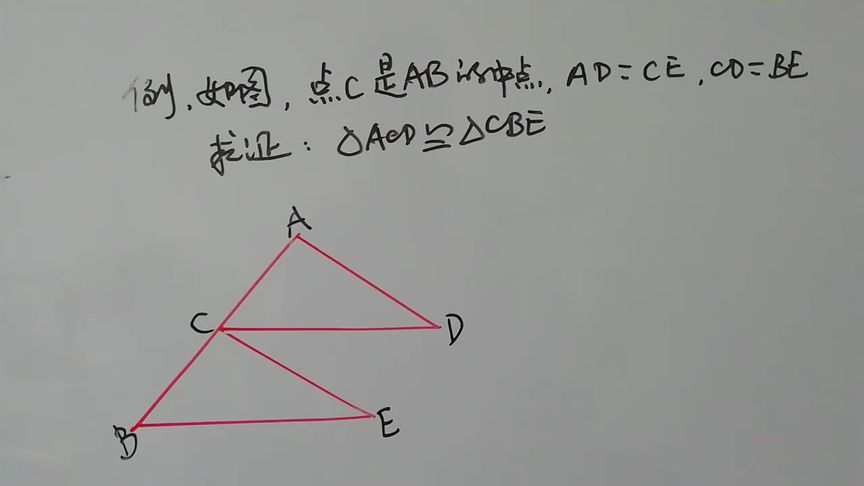 例,如图,点C是AB的中点,AD=CE,CD=BE
求证:△ACD≌△CBE
A
C
D
B
E